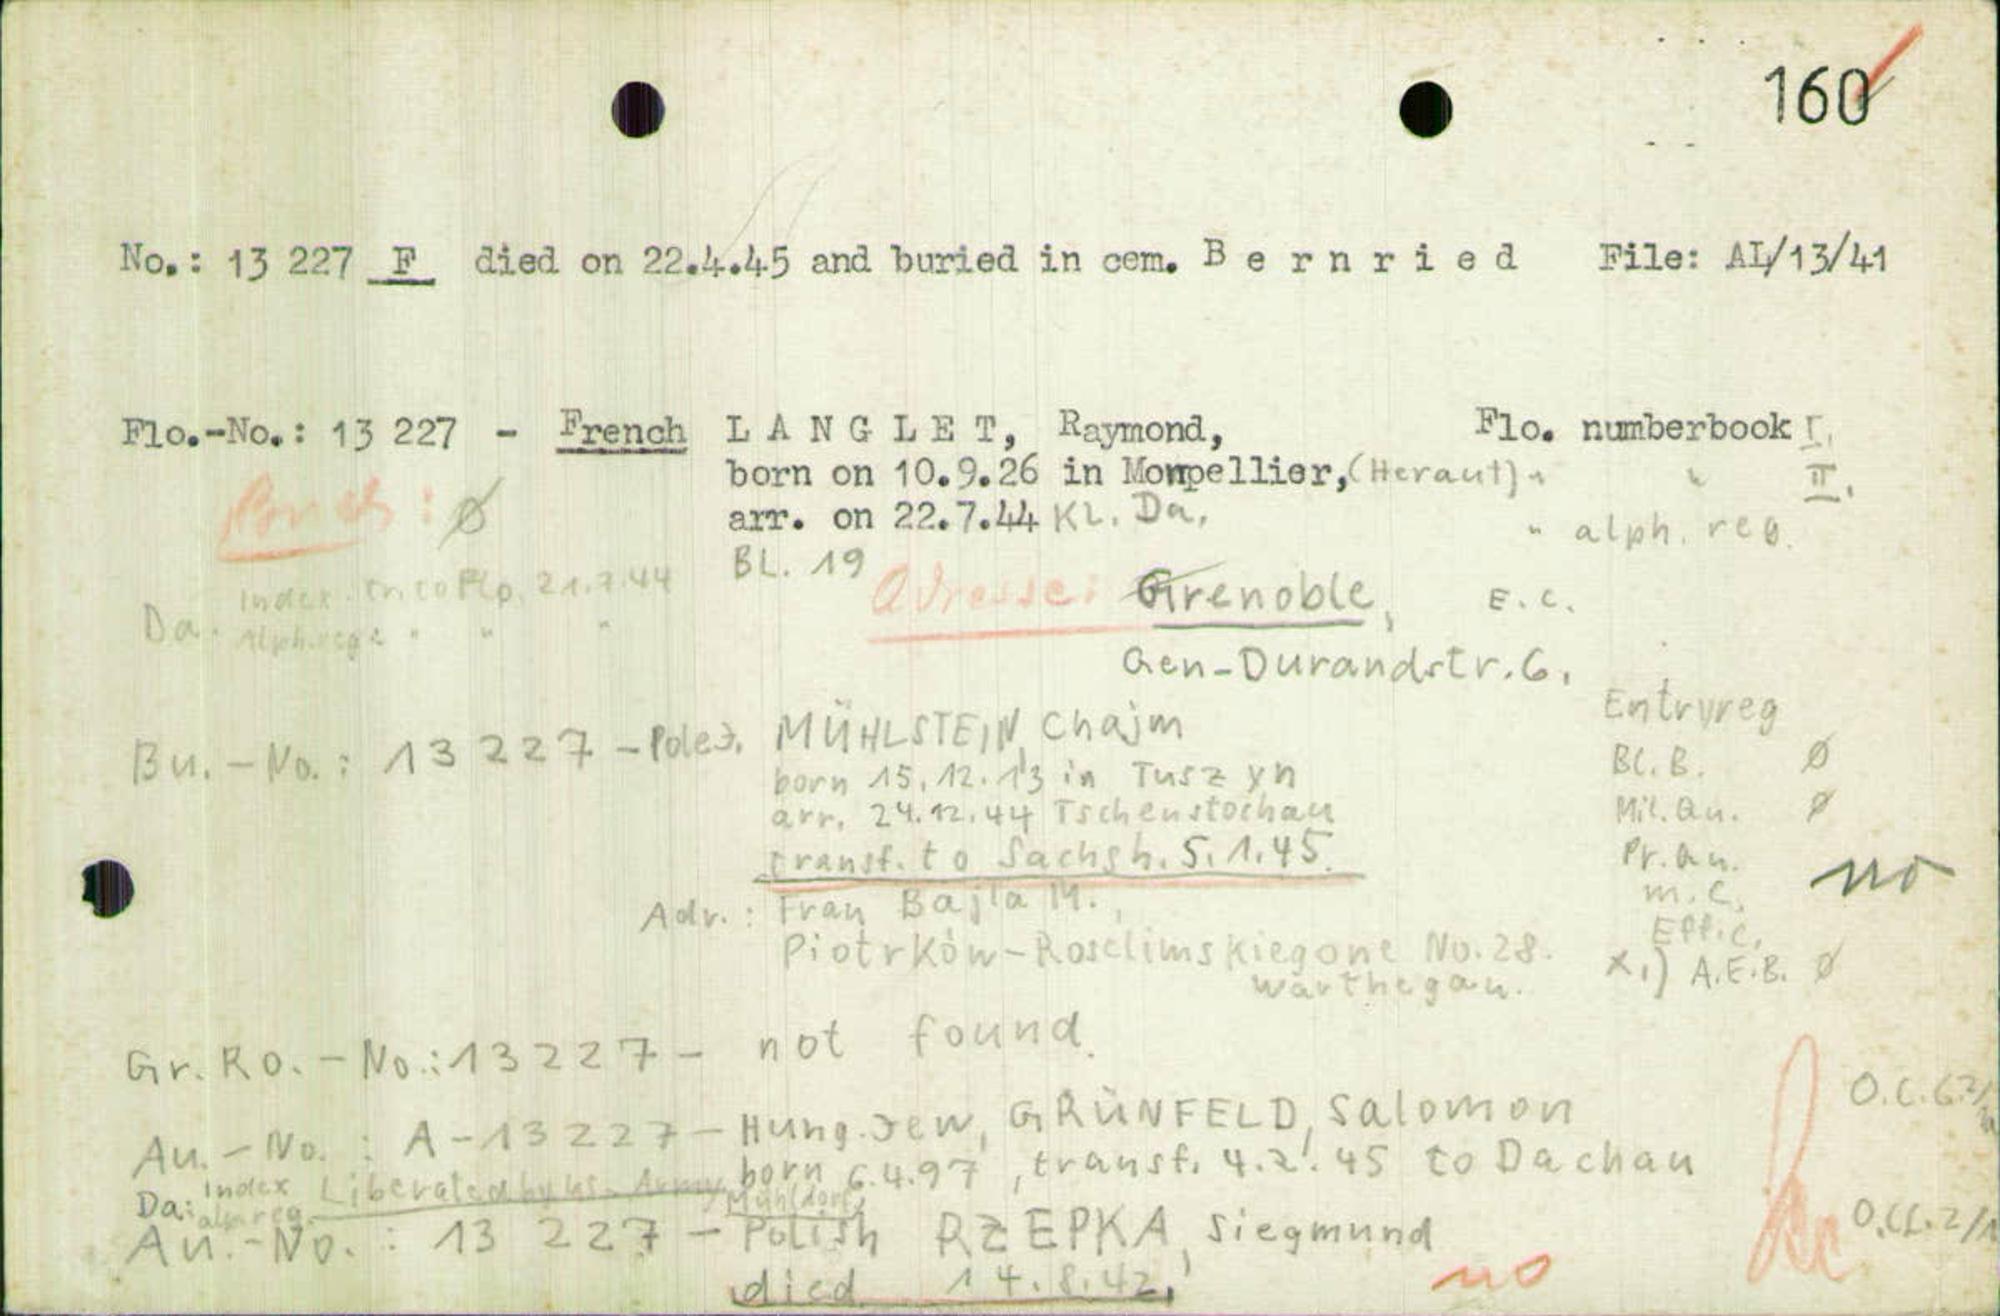 160
No.: 13 227 F died on 22.4.45 and buried in cem. B e r n r i e d File: AL/13/41
Flo.-No.: 13 227 - French L A N G L E T, Raymond, Flo. numberbook I.
born on 10.9.26 in Monpellier, (Heraut) " " II.
arr. on 22.7.44 KL. Da. " alph. reg.
BL. 19
Adresse: Grenoble, E.C.
Gen-Durandstr. 6.
Da. Index. 21.7.44
" " "
Entryreg
Bu.-No.: 13 227 - MÜHLSTEIN, Chajm
Bl.B. Ø
born 15.12.13 in Tuszyn
arr. 24.12.44 Tschenstochau Mil.Au. Ø
transf. to Sachsh. 5.1.45. Pr.Au. no
m.C.
Adr.: Frau Bajla M., Effic.
Piotrków - No. 28. x.) A.E.B. Ø
Warthegau.
Gr.Ro.-No.: 13227 - not found.
Au.-No.: A-13227 - Hung. Jew, GRÜNFELD, Salomon
born 6.4.97, transf. 4.2.45 to Dachau
Da: Index Liberated by US. Army Mühldorf
Au.-No.: 13 227 - Polish RZEPKA, Siegmund
died 14.8.42. no